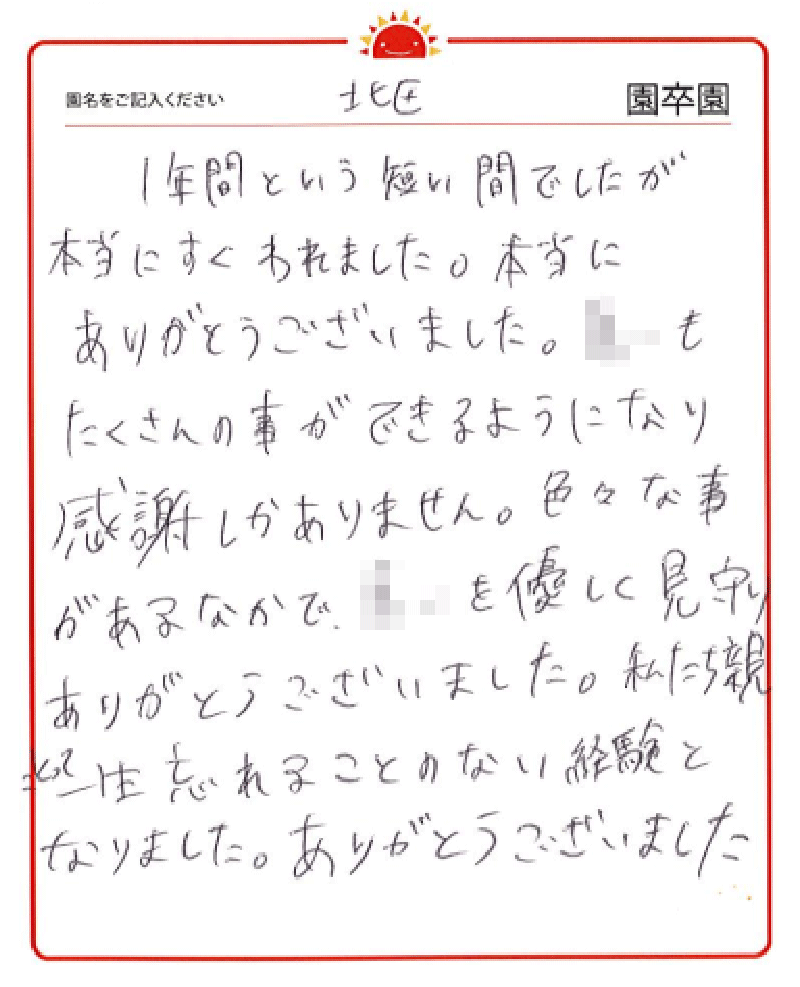 園名をご記入ください 北区 園卒園
1年間という短い間でしたが
本当にすくわれました。本当に
ありがとうございました。 も
たくさんの事ができるようになり
感謝しかありません。色々な事
があるなかで、 を優しく見守り
ありがとうございました。私たち親
一生忘れることのない経験と
なりました。ありがとうございました